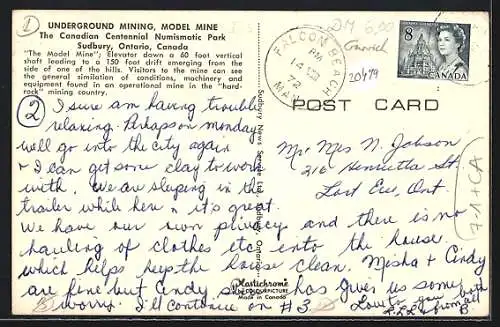 UNDERGROUND MINING, MODEL MINE
The Canadian Centennial Numismatic Park
Sudbury, Ontario, Canada
"The Model Mine"; Elevator down a 60 foot vertical
shaft leading to a 150 foot drift emerging from the
side of one of the hills. Visitors to the mine can see
the general similation of conditions, machinery and
equipment found in an operational mine in the "hard-
rock" mining country.
② I sure am having trouble
relaxing. Perhaps on monday
we'll go into the city again
+ I can get some clay to work
with. We are sleping in the
trailer while here + it's great.
We have our own privacy and there is no
hauling of clothes etc into the house
which helps keep the house clean. Misha + Cindy
are fine but Cindy has given us some
worry. I'll continue on #3. Love to you both
from all
Sudbury News Service Ltd. Sudbury, Ontario
Plastichrome
COLOURPICTURE
Made in Canada
DM 6,00
20479
FALCON BEACH
PM
14 VIII
72
MAN
8
CANADA
POST CARD
Mr + Mrs N. Jobson
316 Henrietta St.
Fort Erie, Ont
7-1+CA